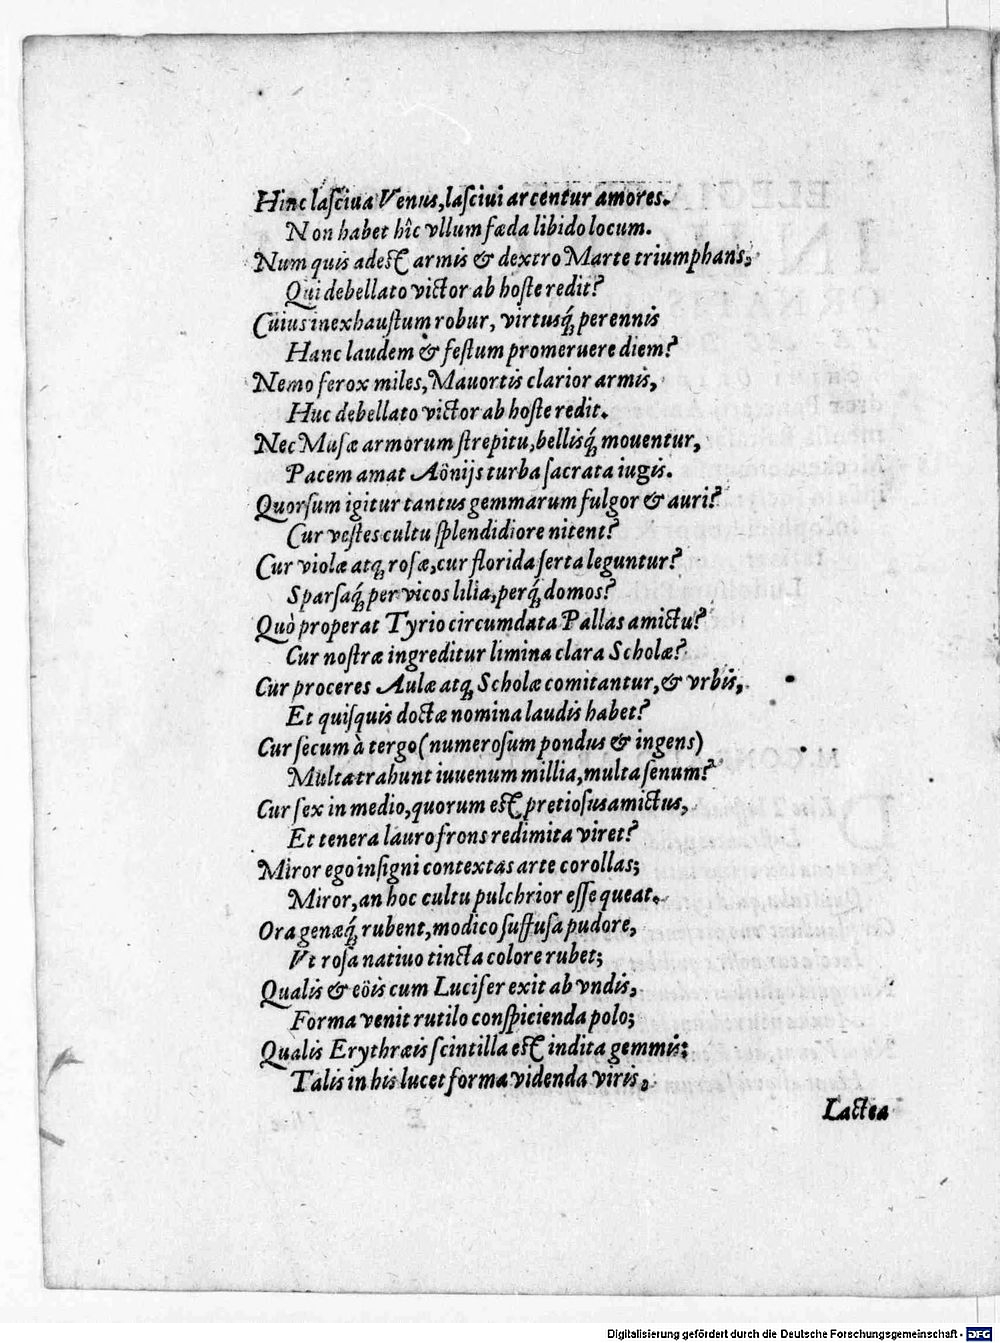 Hinc laſciua Venus, laſciui arcentur amores.
Non habet hîc vllum fæda libido locum.
Num quis adest armis & dextro Marte triumphans,
Qui debellato victor ab hoſte redit?
Cuius inexhauſtum robur, virtusq́; perennis
Hanc laudem & feſtum promeruere diem?
Nemo ferox miles, Mauortis clarior armis,
Huc debellato victor ab hoſte redit.
Nec Muſæ armorum ſtrepitu, bellisq́; mouentur,
Pacem amat Aönijs turba ſacrata iugis.
Quorſum igitur tantus gemmarum fulgor & auri?
Cur veſtes cultu ſplendidiore nitent?
Cur violæ atq; roſæ, cur florida ſerta leguntur?
Sparſaq́; per vicos lilia, perq́; domos?
Quò properat Tyrio circumdata Pallas amictu?
Cur noſtræ ingreditur limina clara Scholæ?
Cur proceres Aulæ atq; Scholæ comitantur, & vrbis,
Et quiſquis doctæ nomina laudis habet?
Cur ſecum à tergo (numeroſum pondus & ingens)
Multa trahunt iuuenum millia, multa ſenum?
Cur ſex in medio, quorum est pretioſus amictus,
Et tenera lauro frons redimita viret?
Miror ego inſigni contextas arte corollas;
Miror, an hoc cultu pulchrior eſſe queat.
Ora genæq́; rubent, modico ſuffuſa pudore,
Vt roſa natiuo tincta colore rubet;
Qualis & eöis cum Lucifer exit ab vndis,
Forma venit rutilo conſpicienda polo;
Qualis Erythræis ſcintilla est indita gemmis;
Talis in his lucet forma videnda viris.
Lactea
Digitalisierung gefördert durch die Deutsche Forschungsgemeinschaft - DFG